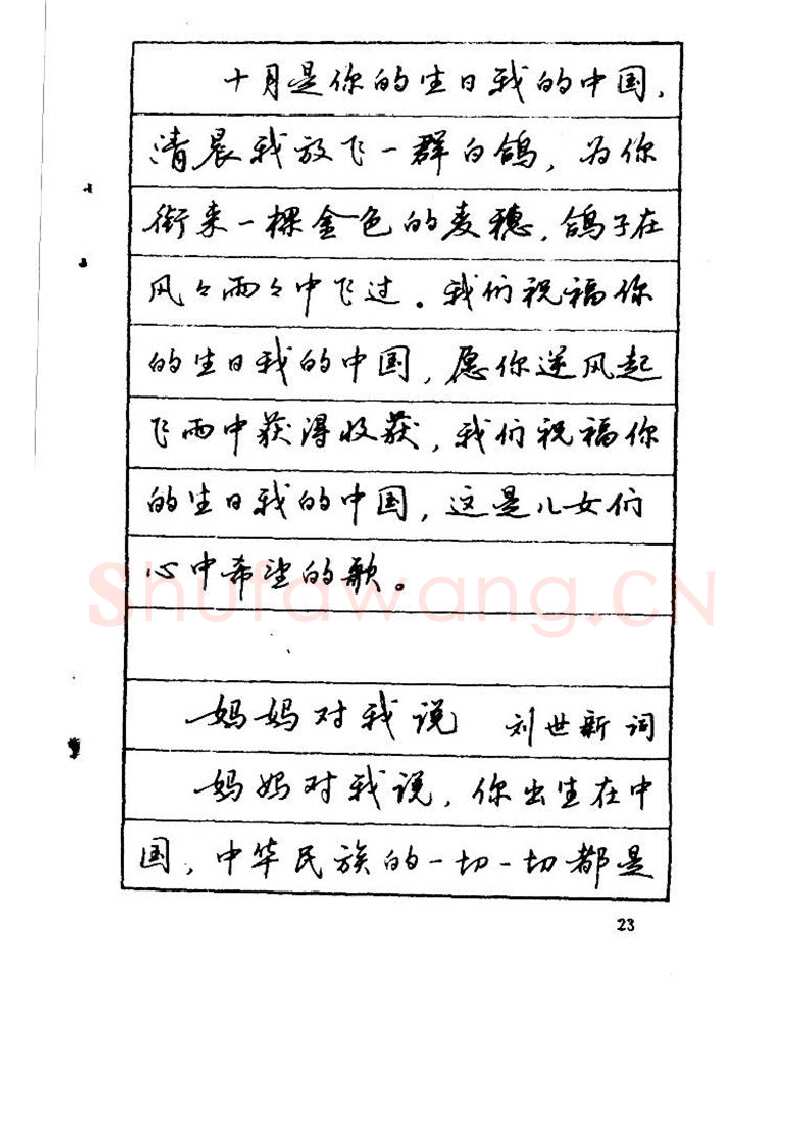 十月是你的生日我的中国，
清晨我放飞一群白鸽，为你
衔来一棵金色的麦穗，鸽子在
风々雨々中飞过。我们祝福你
的生日我的中国，愿你逆风起
飞雨中获得收获，我们祝福你
的生日我的中国，这是儿女们
心中希望的歌。
Shufawang.CN
妈妈对我说 刘世新词
妈妈对我说，你出生在中
国，中华民族的一切一切都是
23